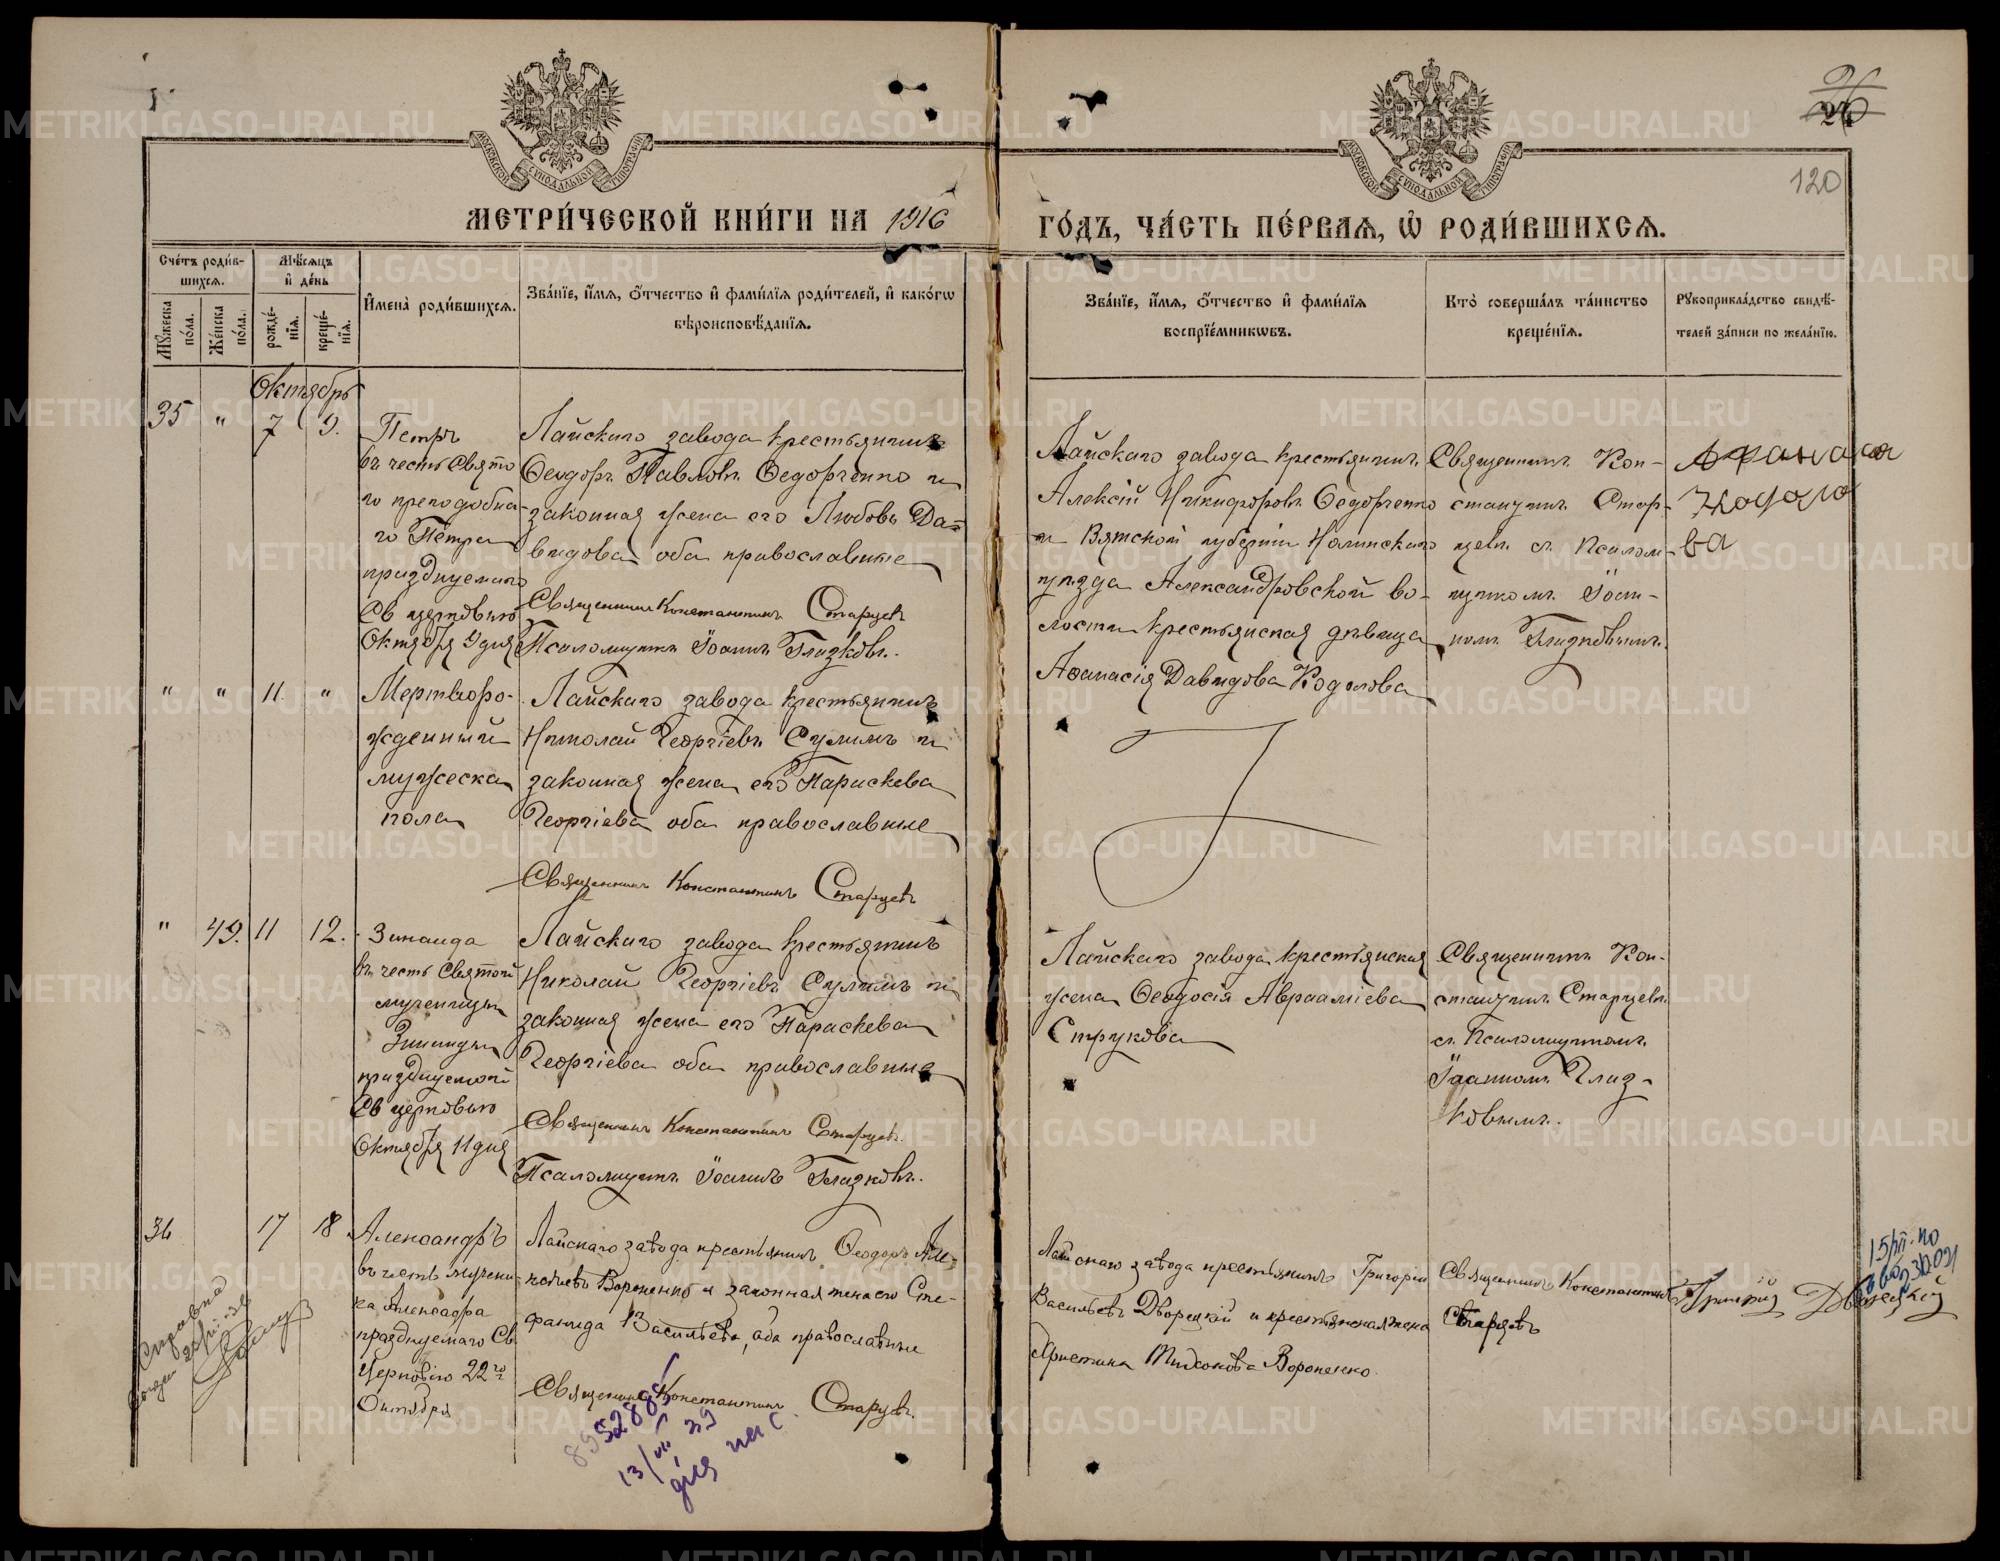 МЕТРИ́ЧЕСКОЙ КНИ́ГИ НА 1916
ГО́ДЪ, ЧА́СТЬ ПЕ́РВАѦ, Ѡ҆ РОДИ́ВШИХСѦ.
120
Сче́тъ роди́в-
шихсѧ.
Мѣ́сѧцъ
и҆ де́нь
Мꙋ́жеска
по́ла.
Же́нска
по́ла.
рожде́-
нїѧ.
креще́-
нїѧ.
И҆мена̀ роди́вшихсѧ.
Зва́нїе, и҆́мѧ, ѻ҆́тчество и҆ фами́лїѧ роди́телей, и҆ како́гѡ
вѣроисповѣ́данїѧ.
Зва́нїе, и҆́мѧ, ѻ҆́тчество и҆ фами́лїѧ
воспрїе́мникѡвъ.
Кто̀ соверша́лъ та́инство
креще́нїѧ.
Рꙋкоприкла́дство свидѣ́-
телей за́писи по жела́нїю.
Октябрь
35 " 7 9.
Петръ
въ честь Свято
го преподобна-
го Петра
празднуемаго
Св церковью
Октября 9 дня
Лайскаго завода крестьянинъ
Ѳеодоръ Павловъ Ѳедорченко и
законная жена его Любовь Да-
видова оба православные
Священникъ Константинъ Старцевъ
Псаломщикъ Іоаннъ Глазковъ.
Лайскаго завода крестьянинъ
Алексій Никифоровъ Ѳедорченко
и Вятской губерніи Нолинскаго
уѣзда Александровской во-
лости крестьянская дѣвица
Аѳанасія Давидова Кодолова
Священникъ Кон-
стантинъ Стар-
цевъ съ Псалом-
щикомъ Іоан-
номъ Глазковымъ.
" " 11. "
Мертворо-
жденный
мужеска
пола
Лайскаго завода крестьянинъ
Николай Георгіевъ Сулимъ и
законная жена его Параскева
Георгіева оба православные
Священникъ Константинъ Старцевъ
" 49. 11 12.
Зинаида
въ честь Святой
мученицы
Зинаиды
празднуемой
Св церковью
Октября 11 дня
Лайскаго завода крестьянинъ
Николай Георгіевъ Сулимъ и
законная жена его Параскева
Георгіева оба православные
Священникъ Константинъ Старцевъ.
Псаломщикъ Іоаннъ Глазковъ.
Лайскаго завода крестьянская
жена Ѳеодосія Авраамиева
Струкова
Священникъ Кон-
стантинъ Старцевъ
съ Псаломщикомъ
Іоанномъ Глаз-
ковымъ.
36 17 18
Александръ
въ честь мучени
ка Александра
празднуемаго Св
Церковію 22го
Октября
Лайскаго завода крестьянинъ Ѳеодоръ Але-
Вороненко и законная жена его Сте-
фанида Васильева, оба православные
Священникъ Константинъ Старцевъ.
Лайскаго завода крестьянинъ Григорій
Васильевъ Дворецкій и крестьянская жена
Христина Вороненко.
Священникъ Константинъ
Старцевъ
Григорій Дворецкій
Справка
13/VII 39
METRIKI.GASO-URAL.RU